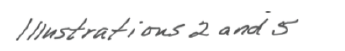 Illustrations 2 and 5